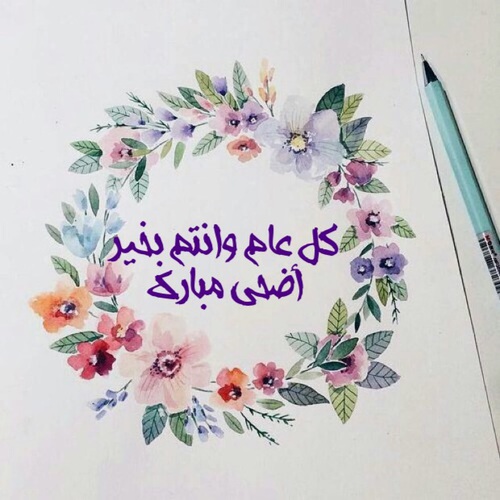 كل عام وانتم بخير
أضحى مبارك